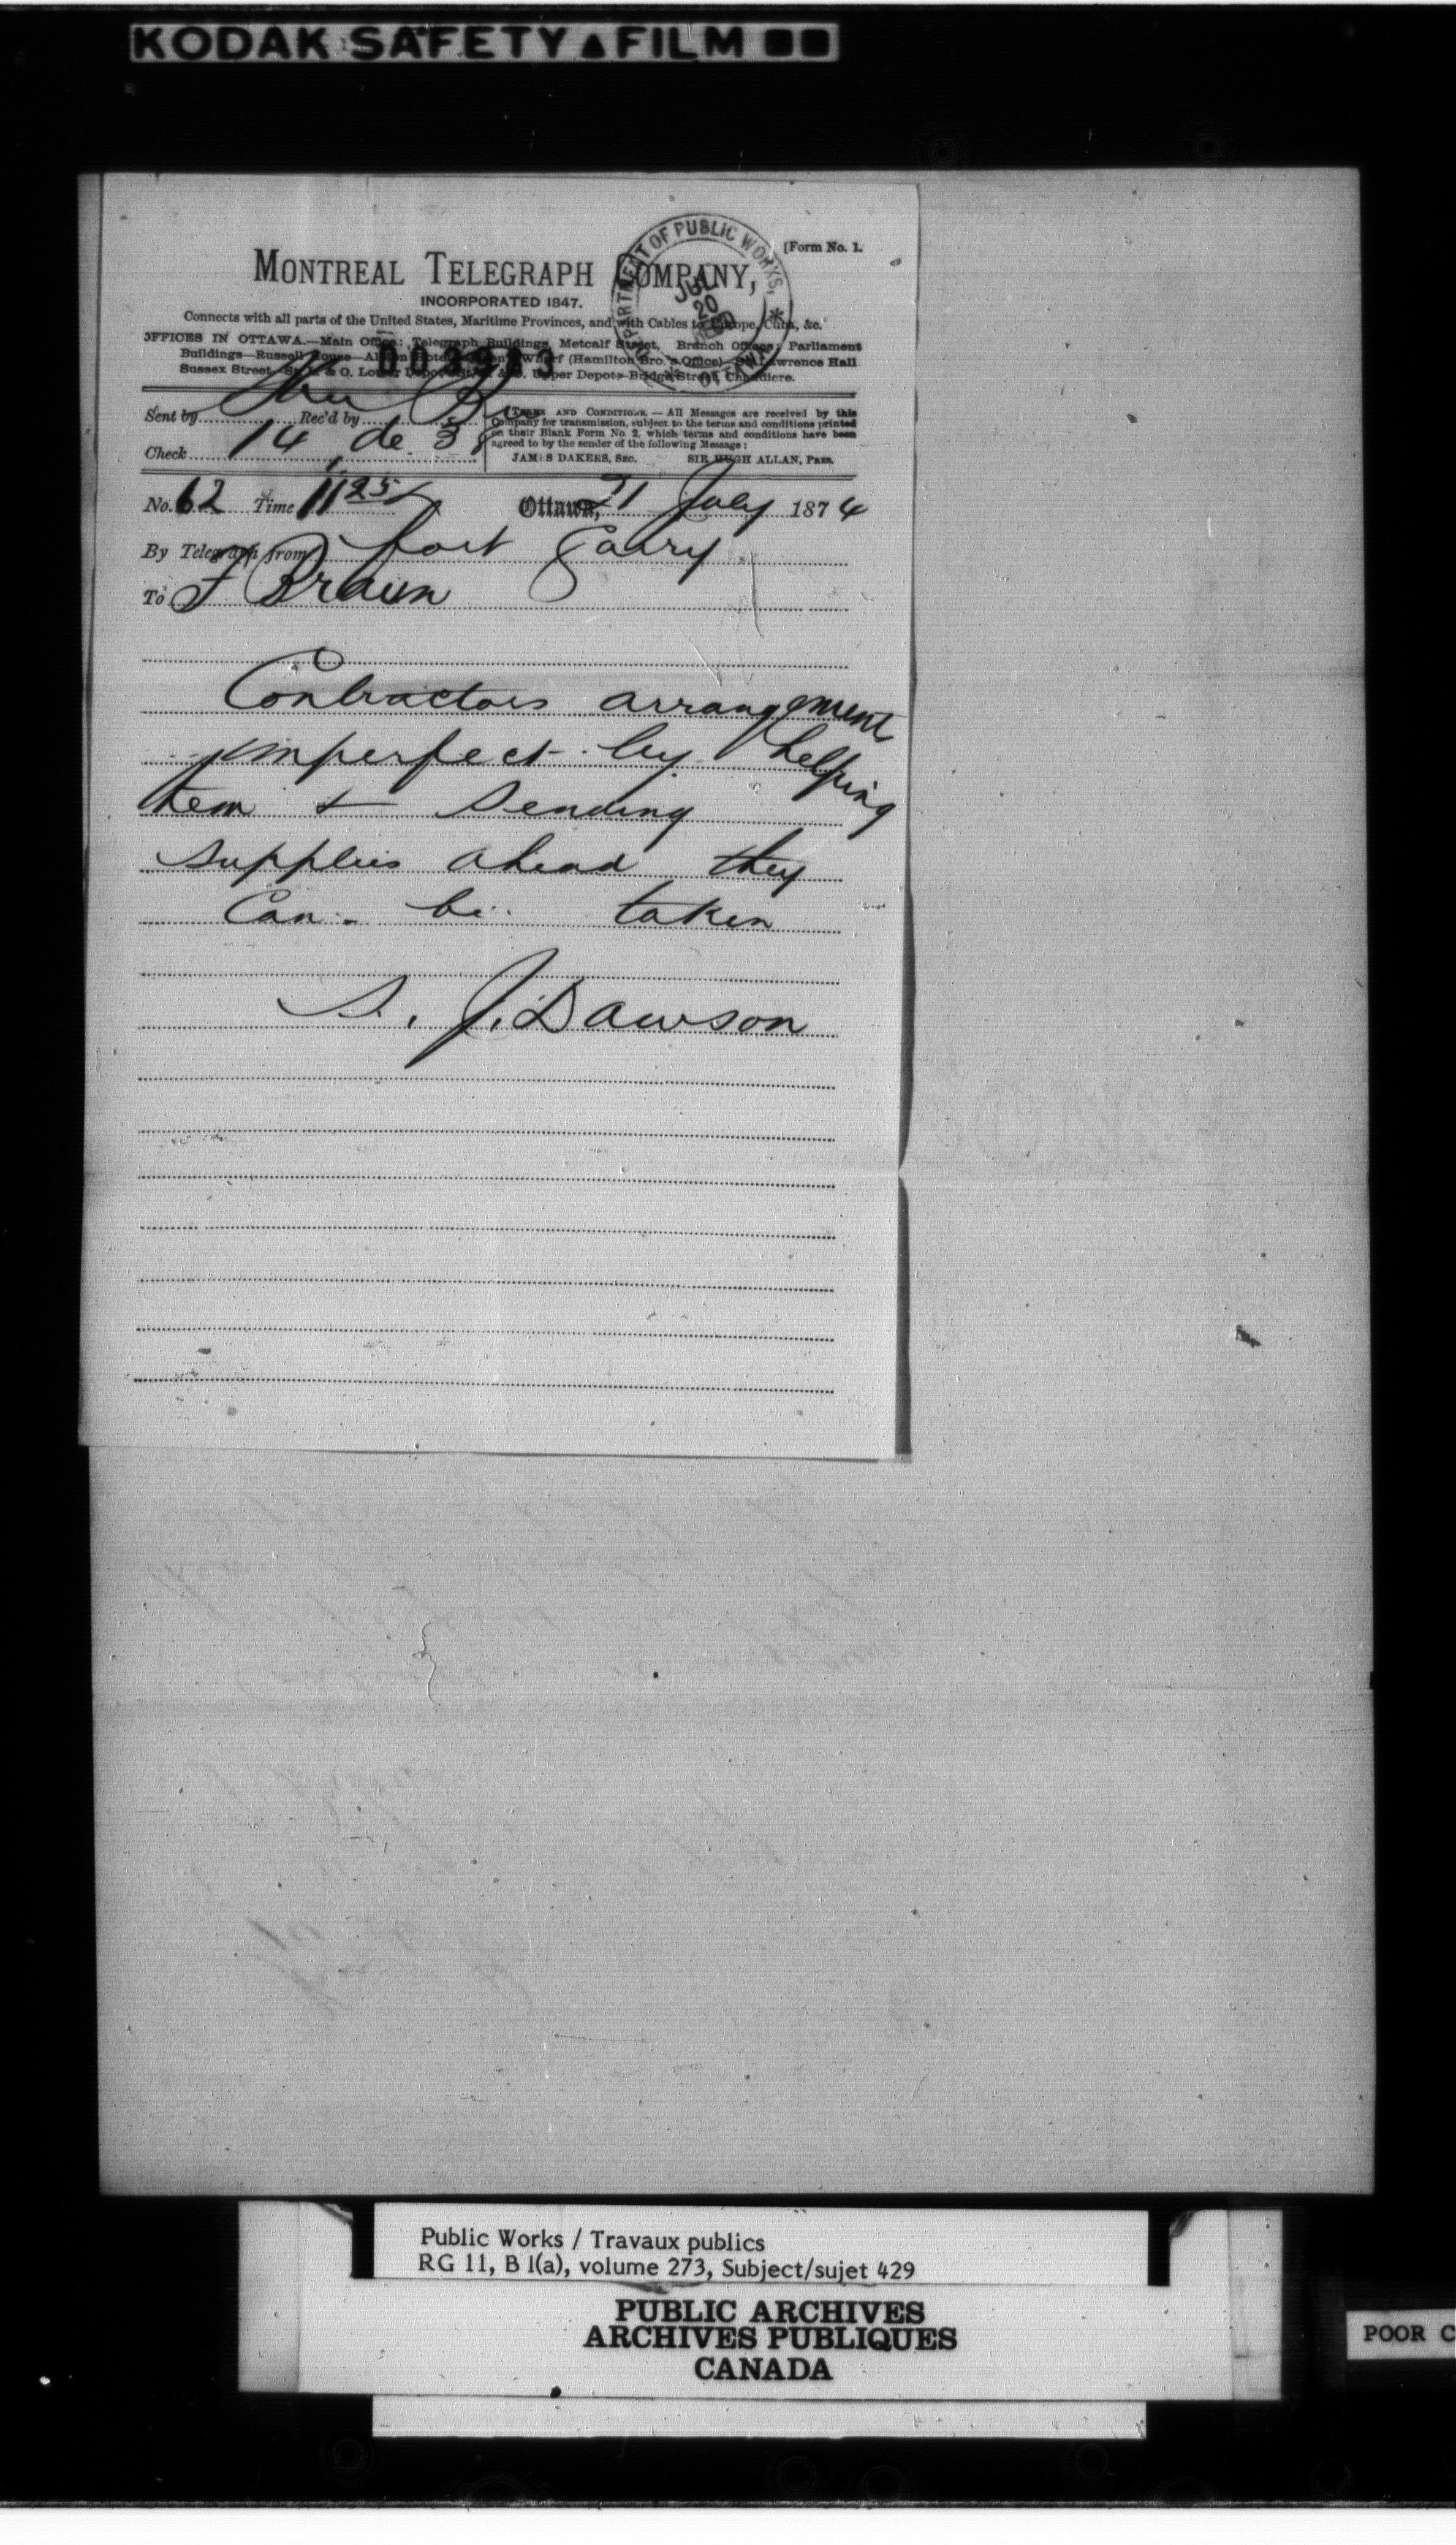 KODAK SAFETY FILM
[Form No. 1.
MONTREAL TELEGRAPH COMPANY,
INCORPORATED 1847.
Connects with all parts of the United States, Maritime Provinces, and with Cables to Europe, Cuba, &c.
OFFICES IN OTTAWA.—Main Office: Telegraph Buildings, Metcalf Street. Branch Offices: Parliament
Buildings—Russell House—Albion Hotel— Wharf (Hamilton Bro.'s Office)—St. Lawrence Hall
Sussex Street—St. L. & O. Lower Depot—St. L. & O. Upper Depot—Bridge Street, Chaudiere.
DEPARTMENT OF PUBLIC WORKS, * OTTAWA
JUL
20
Sent by Rec'd by
Check 14 de 38
TERMS AND CONDITIONS.—All Messages are received by this
Company for transmission, subject to the terms and conditions printed
on their Blank Form No. 2, which terms and conditions have been
agreed to by the sender of the following Message:
JAMES DAKERS, SEC. SIR HUGH ALLAN, PRES.
No. 62 Time 11 25 Ottawa, 21 July 1874
By Telegraph from Fort Garry
To F Braun
Contractors arrangement
imperfect by helping
them + sending
supplies ahead they
Can be taken
S. J. Dawson
Public Works / Travaux publics
RG 11, B 1(a), volume 273, Subject/sujet 429
PUBLIC ARCHIVES
ARCHIVES PUBLIQUES
CANADA
POOR C